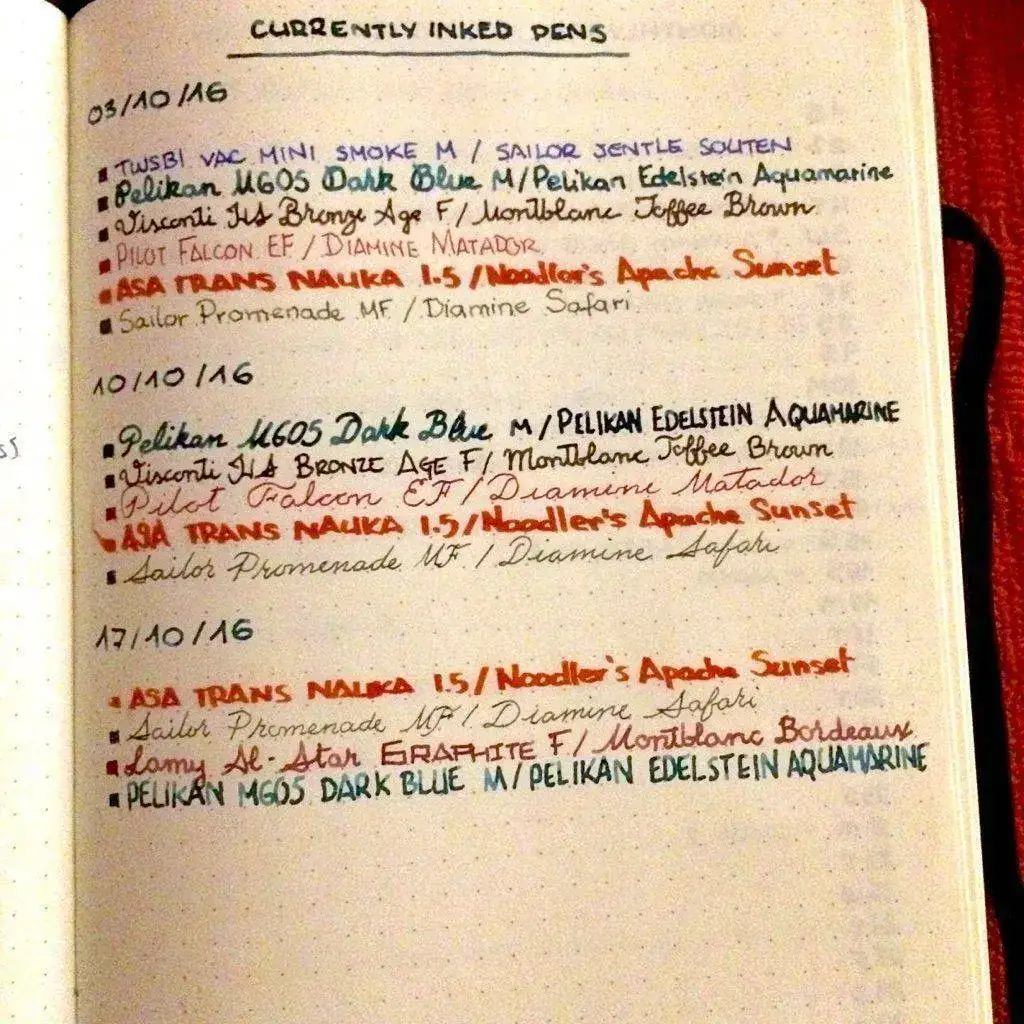 CURRENTLY INKED PENS
03/10/16
TWSBI VAC MINI SMOKE M / SAILOR JENTLE SOUTEN
Pelikan M605 Dark Blue M/Pelikan Edelstein Aquamarine
Visconti HS Bronze Age F/Montblanc Toffee Brown
PILOT FALCON EF / DIAMINE MATADOR
ASA TRANS NAUKA 1.5/Noodler's Apache Sunset
Sailor Promenade MF / Diamine Safari
10/10/16
Pelikan M605 Dark Blue M/PELIKAN EDELSTEIN AQUAMARINE
Visconti HS BRONZE AGE F/Montblanc Toffee Brown
Pilot Falcon EF/Diamine Matador
ASA TRANS NAUKA 1.5/Noodler's Apache Sunset
Sailor Promenade MF / Diamine Safari
17/10/16
ASA TRANS NAUKA 1.5/Noodler's Apache Sunset
Sailor Promenade MF / Diamine Safari
Lamy Al-Star GRAPHITE F/Montblanc Bordeaux
PELIKAN M605 DARK BLUE M/PELIKAN EDELSTEIN AQUAMARINE